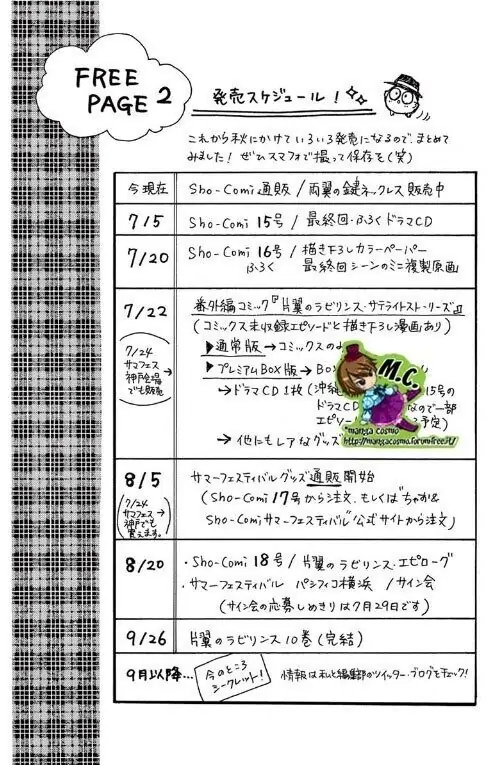 FREE
PAGE 2
発売スケジュール!
これから秋にかけていろいろ発売になるので、まとめて
みました! ぜひスマフォで撮って保存を(笑)
今現在
Sho-Comi 通販 / 両翼の鍵ネックレス 販売中
7/5
Sho-Comi 15号 / 最終回・ふろくドラマCD
7/20
Sho-Comi 16号 / 描き下ろしカラーペーパー
ふろく 最終回シーンのミニ複製原画
7/22
7/24
サマフェス
神戸会場
でも販売
番外編コミック『片翼のラビリンス・サテライトストーリーズ』
(コミックス未収録エピソードと描き下ろし漫画あり)
▶通常版→コミックスのみ
▶プレミアムBOX版→
→ドラマCD1枚(沖縄 15号の
ドラマCD なので一部
エピソー 予定)
→他にもレアなグッズ
M.C.
manga cosmo
http://mangacosmo.forumfree.it/
8/5
7/24
サマフェス→
神戸でも
買えます。
サマーフェスティバルグッズ通販開始
(Sho-Comi 17号から注文、もしくは"ちゃお&
Sho-Comiサマーフェスティバル"公式サイトから注文)
8/20
・Sho-Comi 18号 / 片翼のラビリンス・エピローグ
・サマーフェスティバル パシフィコ横浜 / サイン会
(サイン会の応募しめきりは7月29日です)
9/26
片翼のラビリンス10巻(完結)
9月以降…
今のところ
シークレット!
情報は私と編集部のツイッター・ブログをチェック!